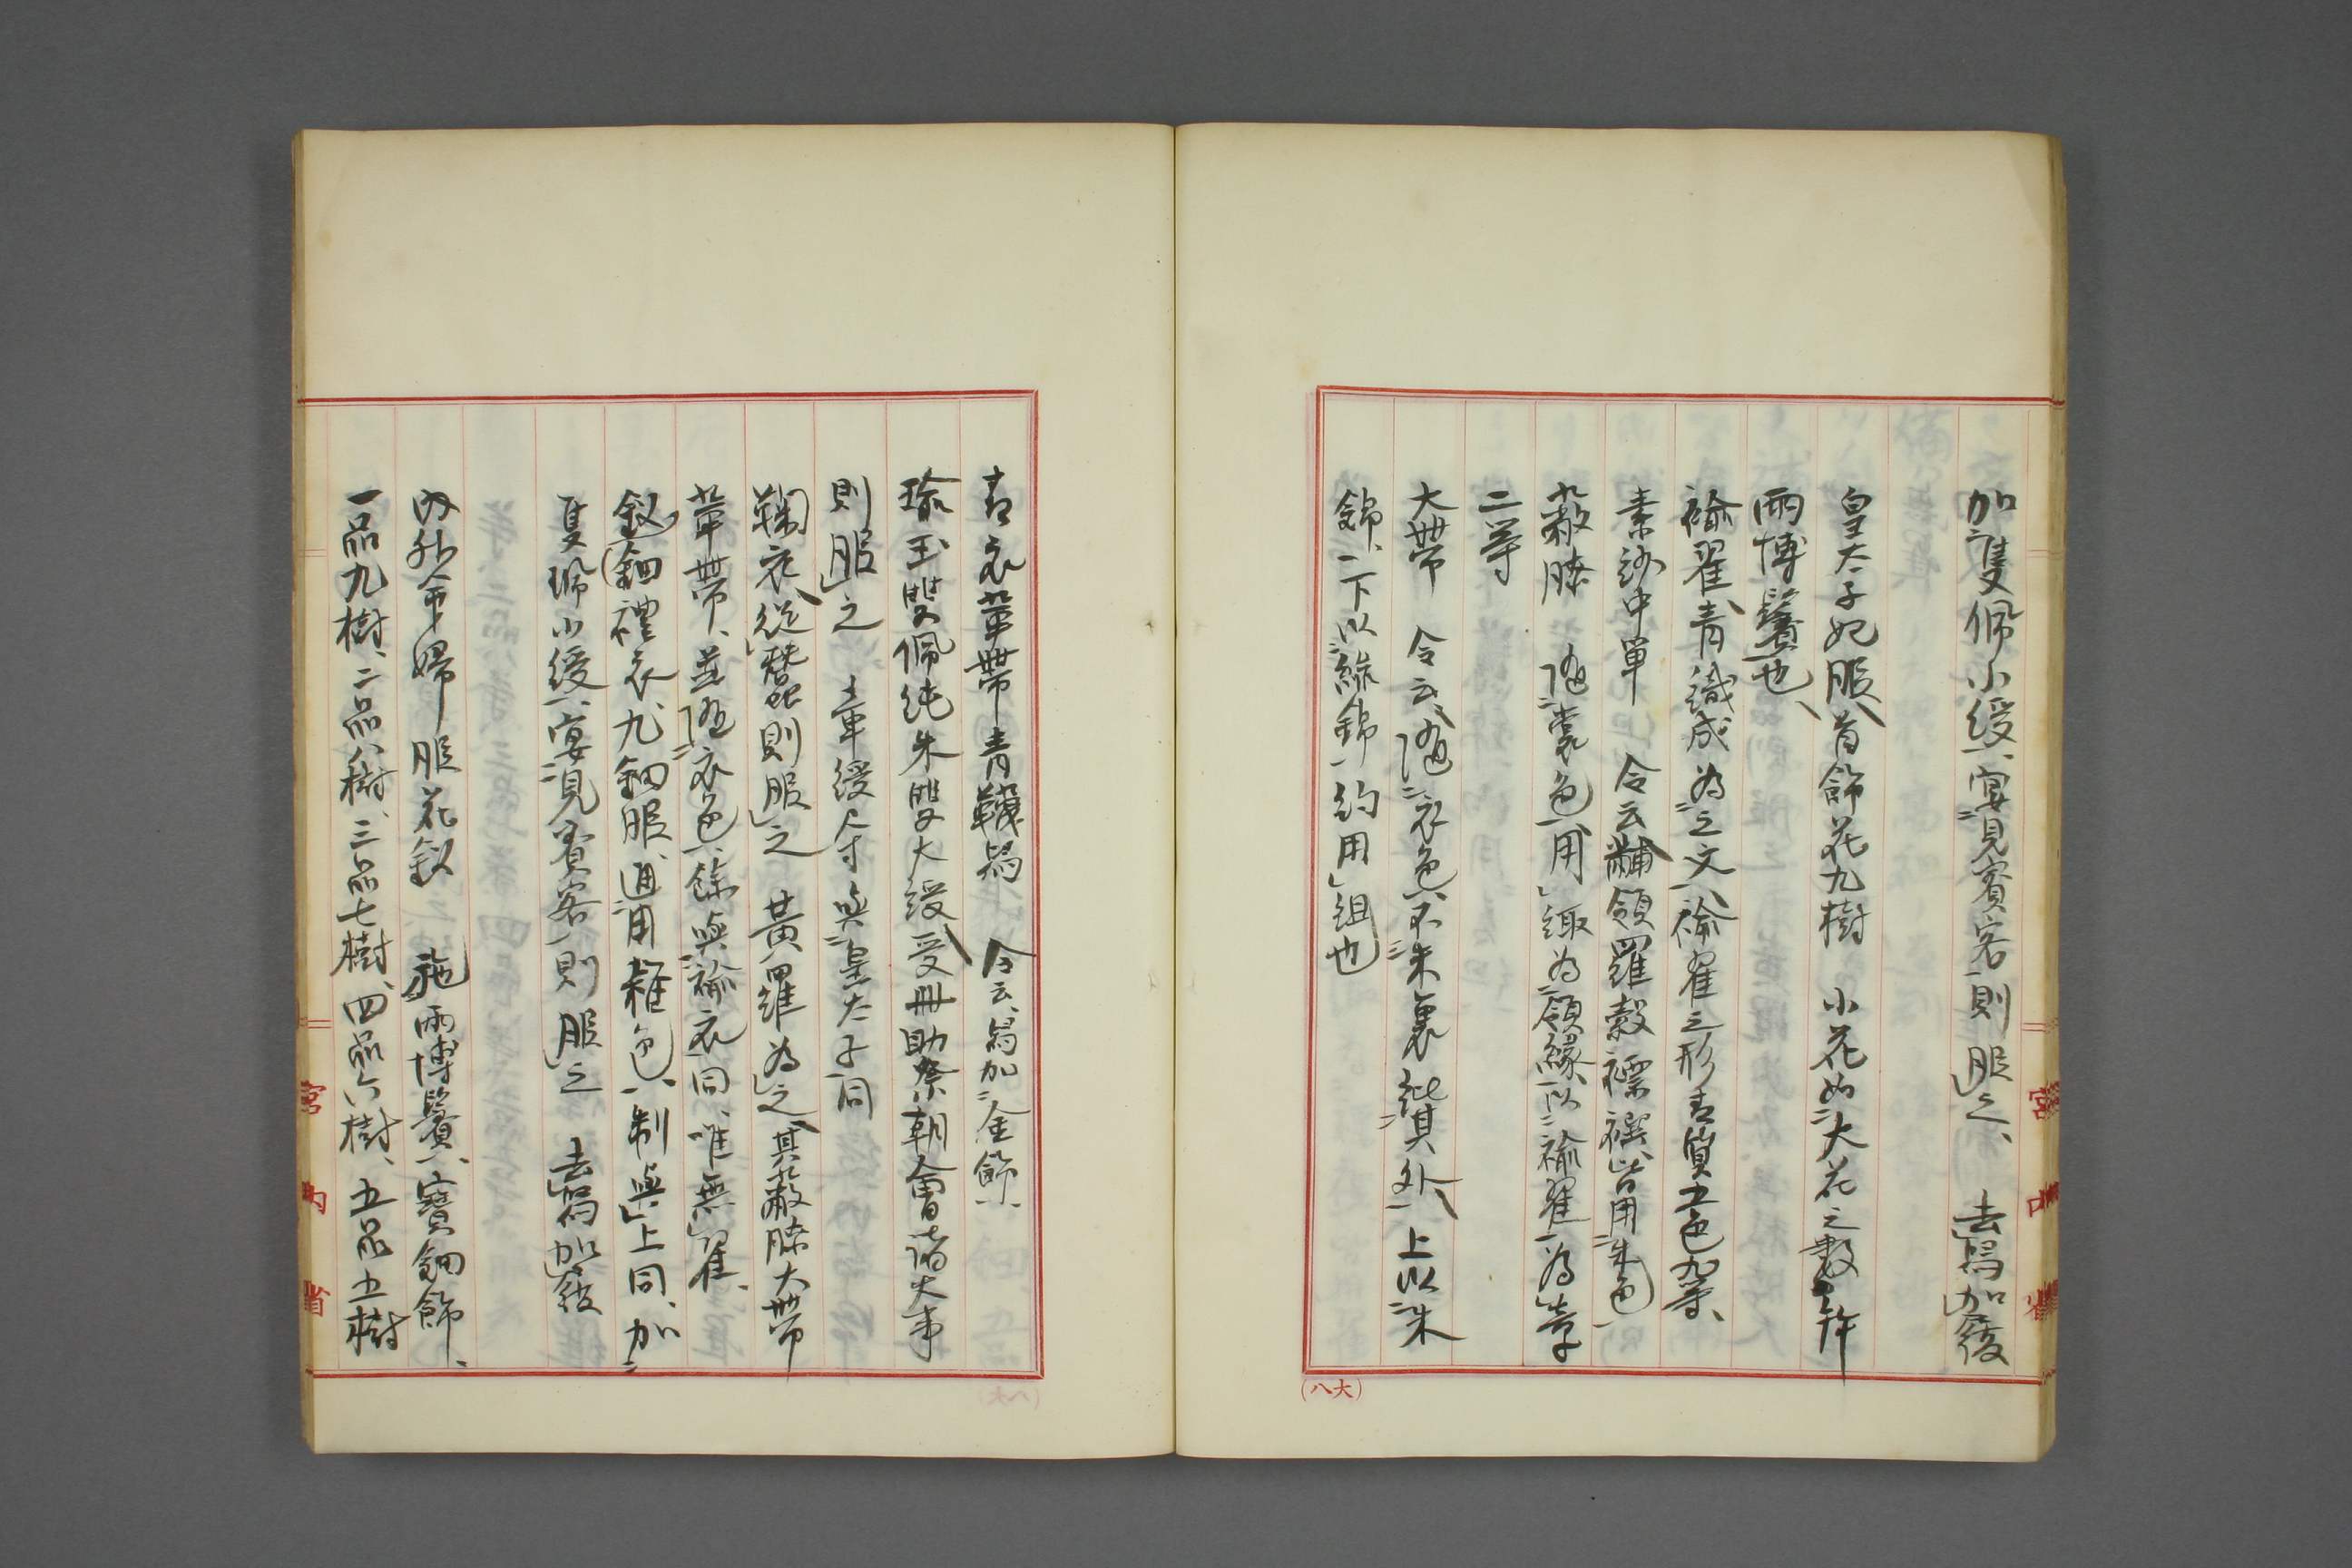 加隻佩小綬、宴見賓客則服之、 去舄加履
皇太子妃服、首飾花九樹 小花如大花之數幷
兩博鬢也、
褕翟、青織成為之、文為褕翟之形青質五色九等、
素紗中單 令云黼領羅縠褾襈皆用朱色
蔽膝 隨裳色用緅為領緣以褕翟為章
二等
大帶 令云、隨衣色、不朱裏紕其外、上以朱
錦、下以綠錦、約用組也
青衣革帶青韈舄 令云、舄加金飾、
瑜玉雙佩純朱雙大綬、受冊助祭朝會諸大事
則服之 章綬尺寸與皇太子同
鞠衣、從蠶則服之 黃羅為之、其蔽膝大帶
革帶、並隨衣色、餘與褕衣同、唯無雉、
鈿釵禮衣、九鈿服、通用雜色、制與上同、加
隻珮小綬、宴見賓客則服之 去舄加履
內外命婦服花釵 施兩博鬢、寶鈿飾、
一品九樹、二品八樹、三品七樹、四品六樹、五品五樹
宮內省
宮內省
(大八)